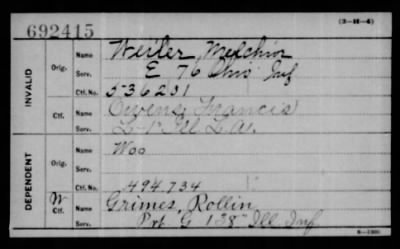 (3-H-6)
692415
INVALID
Orig.
Name
Weiler, Melchior
Serv.
E 76 Ohio Inf
Ctf. No.
536231
Ctf.
Name
Owens, Francis
Serv.
L 1" Ill L.A.
DEPENDENT
Orig.
Name
Woo
Serv.
Ctf. No.
494.734
W
Ctf.
Name
Grimes, Rollin
Serv.
Pvt. G 138" Ill Inf